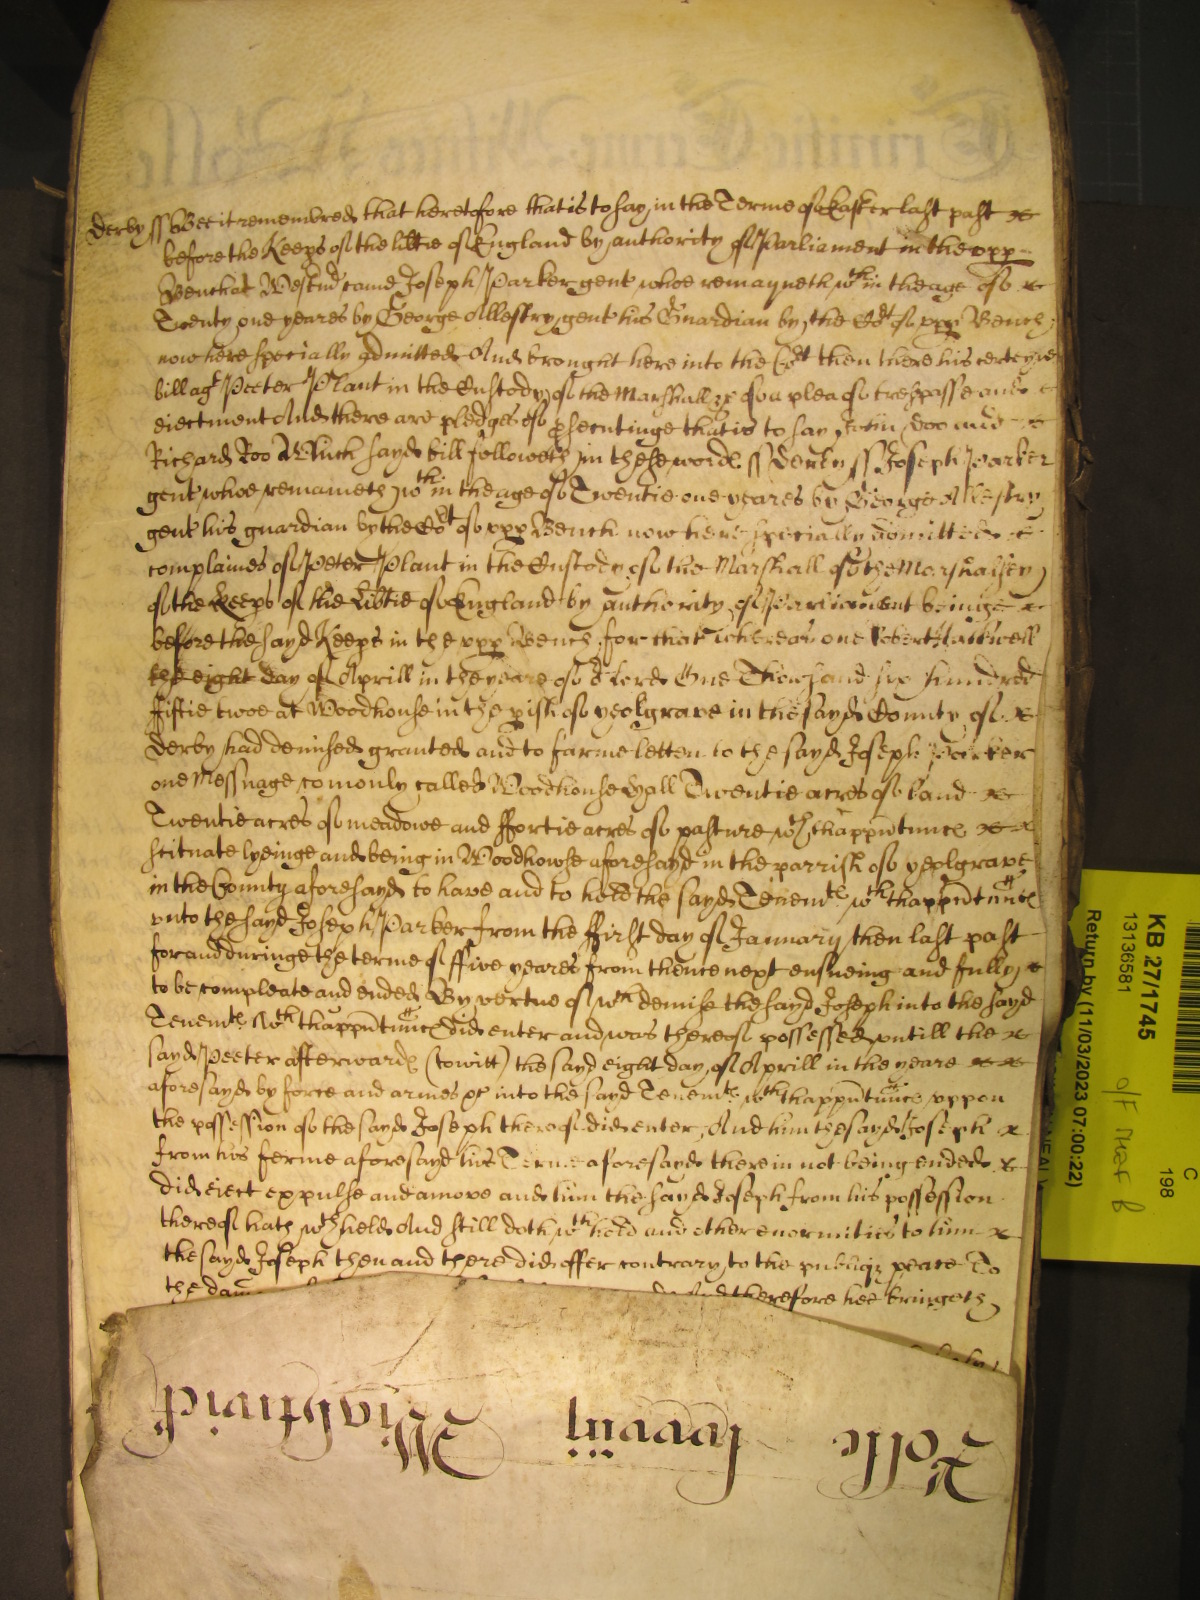 Derby ss Bee it remembred that heretofore that is to say in the Terme of Easter last past
before the Keeps of the lib̃tie of England by authority of Parliament in the upp
Bench at Westm̃ came Joseph Parker gent whoe remayneth wth in the age of
Twenty one yeares by George Allestry gent his Guardian by the Cort of upp Bench
now here specially admitted And brought here into the Cort then there his certeyne
bill agt Peeter Plant in the Custody of the Marshall &c of a plea of trespasse and
eiectment And there are pledges of p̱secutinge that is to say John Doo and
Richard Roo Which sayd bill followeth in these words ss Derby ss Joseph Parker
gent whoe remaineth wth in the age of Twentie one yeares by George Allestry
gent his guardian by the Cort of upp Bench now here specially admitted
complaines of Peter Plant in the Custody of the Marshall of the Marshalsey
of the Keeps of the Lib̃tie of England by authority of Parliament beinge
before the sayd Keeps in the upp Bench for that whereas one Robert
the eight day of Aprill in the yeare of or Lord One Thowsand six hundred
fiftie twoe at Woodhouse in the p̱ish of Yeolgrave in the sayd County of
Derby had demised granted and to farme letten to the sayd Joseph Parker
one Messuage comonly called Woodhouse Hall Twentie acres of land
Twentie acres of meadowe and ffortie acres of pasture wth thapp̱tuncs
scituate lyeinge and being in Woodhowse aforesayd in the parrish of Yeolgrave
in the County aforesayd to have and to hold the sayd Tenemts wth thapp̱tuncs
unto the sayd Joseph Parker from the ffirst day of January then last past
for and duringe the terme of ffive yeares from thence next ensueing and fully
to be compleate and ended By vertue of wch demise the sayd Joseph into the sayd
Tenemts wth thapp̱tuncs did enter and was thereof possessed untill the
sayd Peeter afterwards (towitt) the sayd eight day of Aprill in the yeare
aforesayd by force and armes &c into the sayd Tenemts wth thapp̱tuncs uppon
the possession of the sayd Joseph thereof did enter And him the sayd Joseph
from his ferme aforesayd his Terme aforesayd therein not being ended
did eiect expulse and amove and him the sayd Joseph from his possession
thereof hath wthheld And still doth wthhold and other enormities to him
the sayd Joseph then and there did offer contrary to the publiq peace To
the dam̃ therefore hee bringeth
Rolle lxxviij Wightwick
KB 27/1745
13136581
Return by (11/03/2023 07:00:22)
C
198